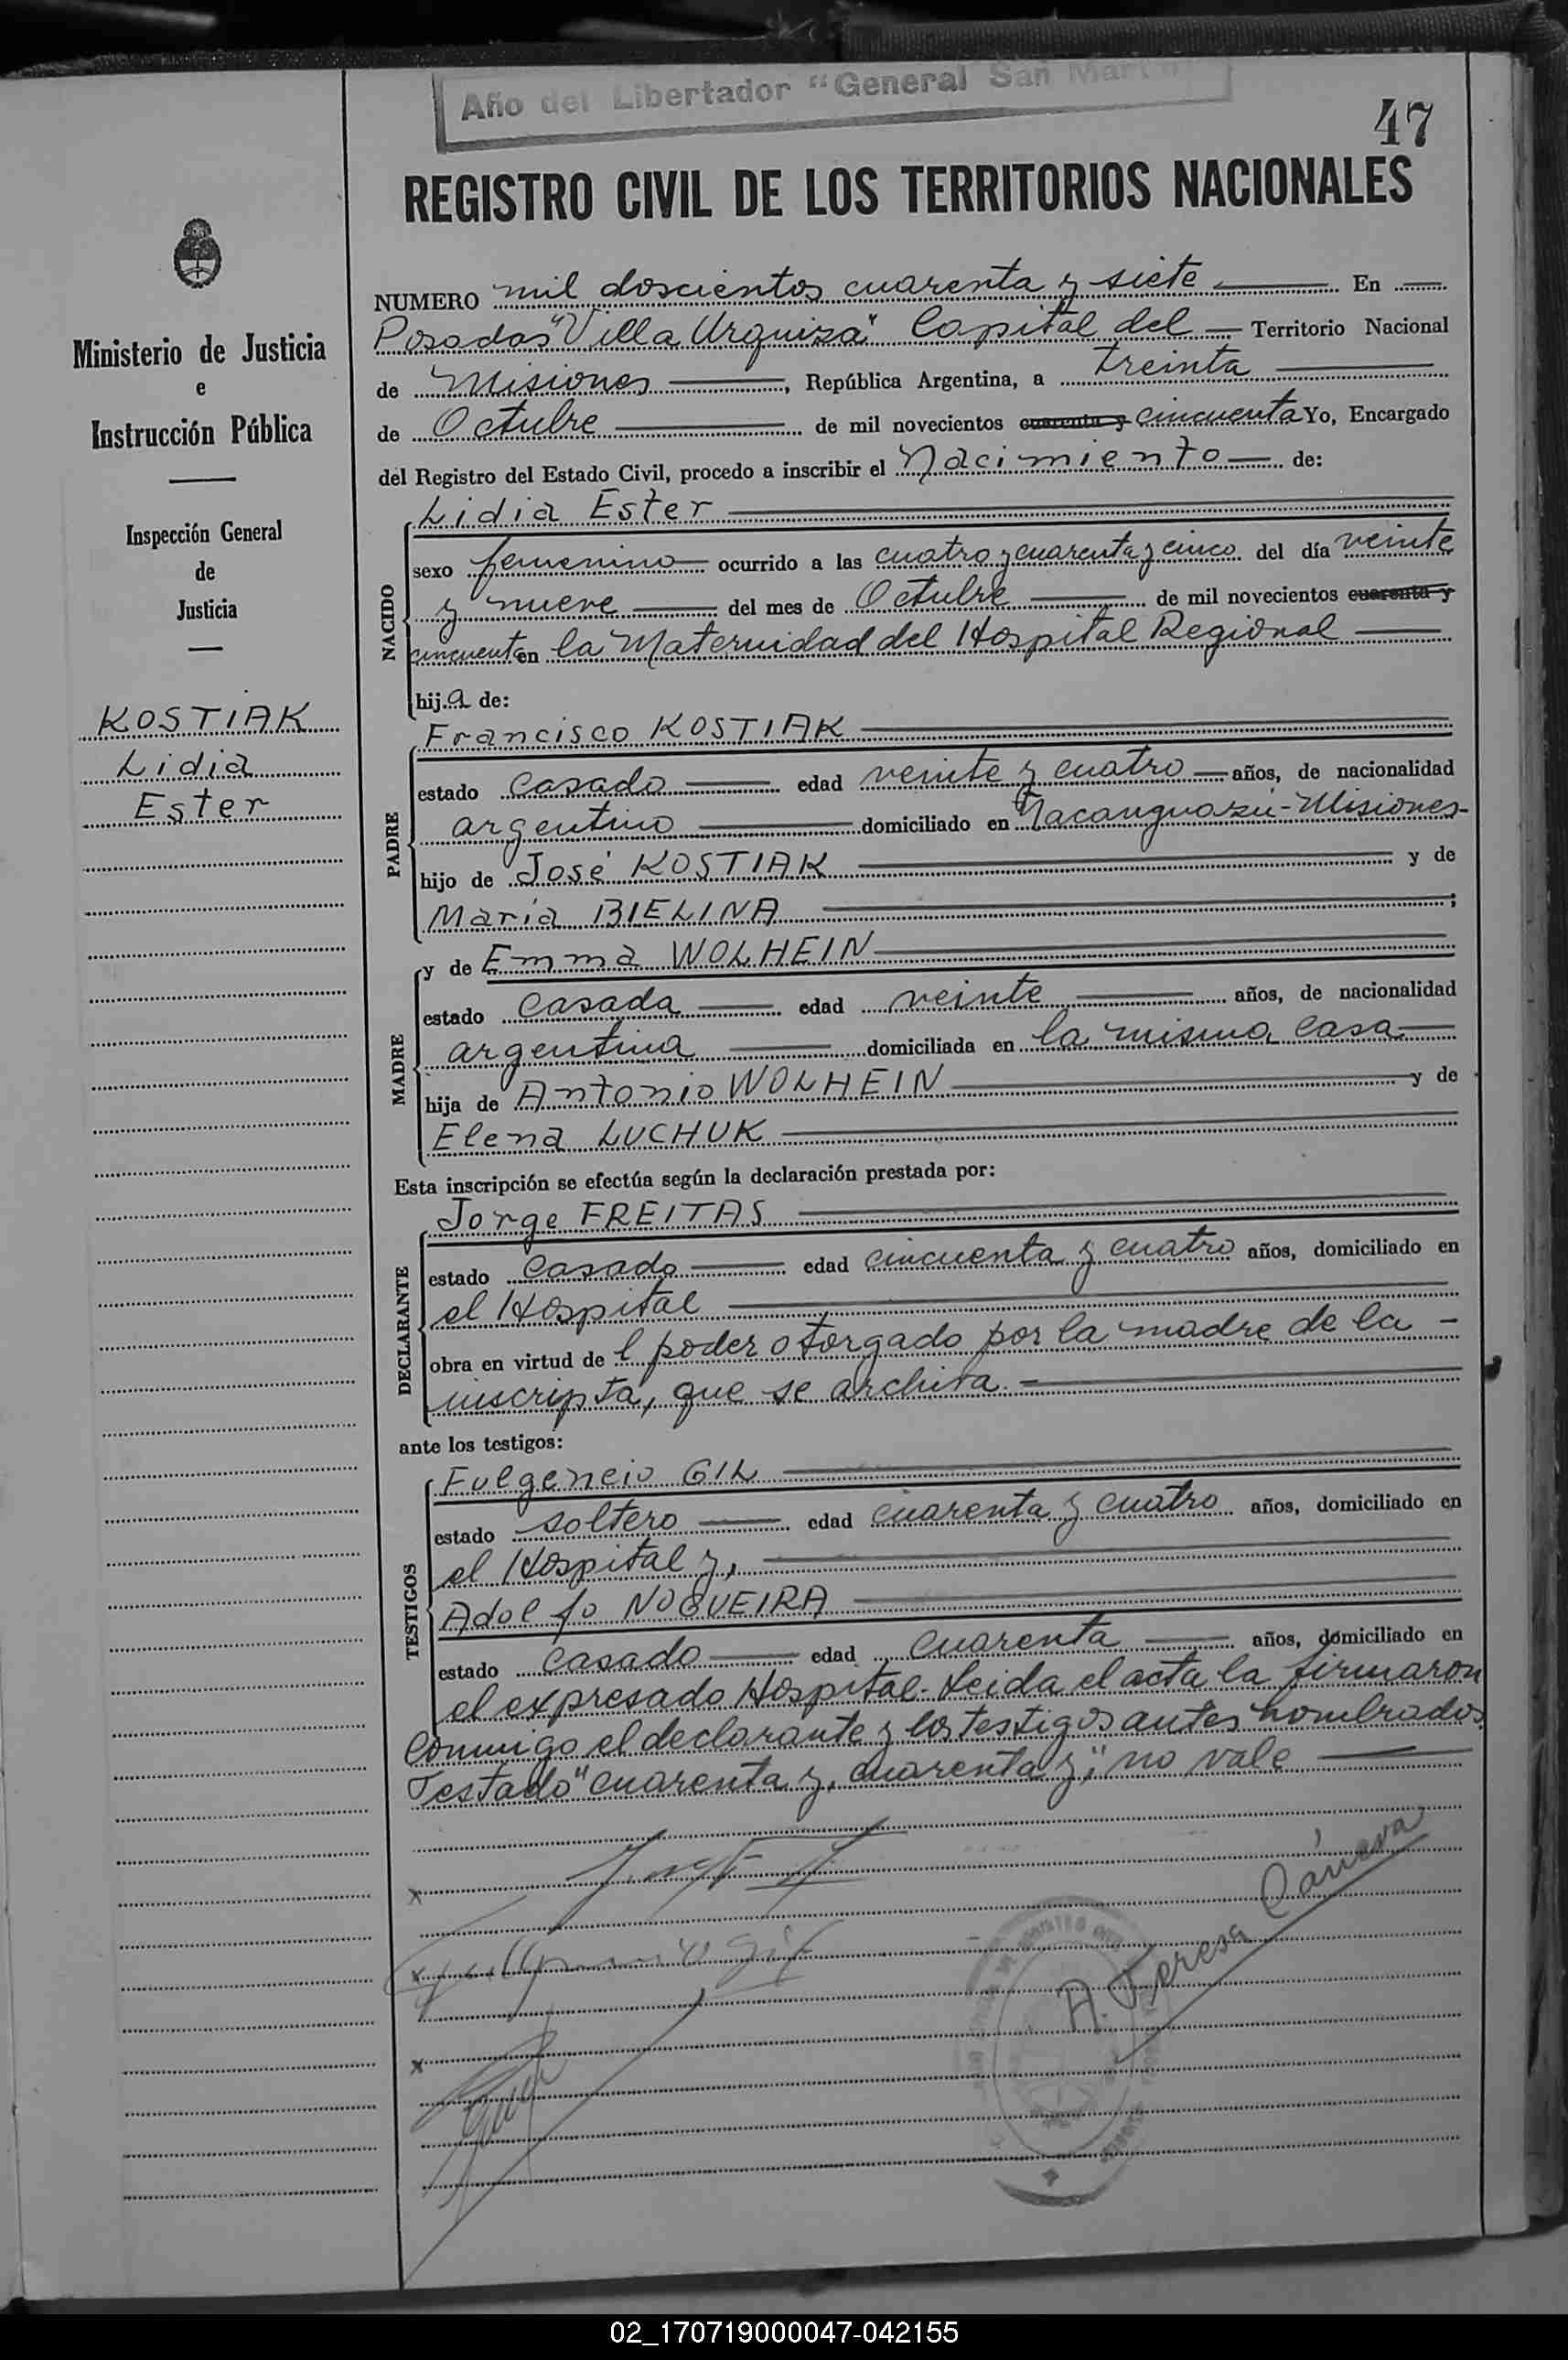 Año del Libertador "General San Martín"
47
REGISTRO CIVIL DE LOS TERRITORIOS NACIONALES
Ministerio de Justicia
e
Instrucción Pública
Inspección General
de
Justicia
KOSTIAK
Lidia
Ester
NUMERO mil doscientos cuarenta y siete En
Posadas "Villa Urquiza" Capital del Territorio Nacional
de Misiones, República Argentina, a treinta
de Octubre de mil novecientos cuarenta y cincuenta Yo, Encargado
del Registro del Estado Civil, procedo a inscribir el Nacimiento de:
NACIDO
Lidia Ester
sexo femenino ocurrido a las cuatro y cuarenta y cinco del día veinte
y nueve del mes de Octubre de mil novecientos cuarenta y
cincuenta en la Maternidad del Hospital Regional
hija de:
PADRE
Francisco KOSTIAK
estado casado edad veinte y cuatro años, de nacionalidad
argentino domiciliado en Yacanguazú-Misiones-
hijo de José KOSTIAK y de
María BIELINA;
MADRE
y de Emma WOLHEIN
estado casada edad veinte años, de nacionalidad
argentina domiciliada en la misma casa
hija de Antonio WOLHEIN y de
Elena LUCHUK
Esta inscripción se efectúa según la declaración prestada por:
DECLARANTE
Jorge FREITAS
estado casado edad cincuenta y cuatro años, domiciliado en
el Hospital
obra en virtud del poder otorgado por la madre de la -
inscripta, que se archiva.-
ante los testigos:
TESTIGOS
Fulgencio GIL
estado soltero edad cuarenta y cuatro años, domiciliado en
el Hospital y,
Adolfo NOGUEIRA
estado casado edad cuarenta años, domiciliado en
el expresado Hospital. Leida el acta la firmaron
conmigo el declarante y los testigos antes nombrados.
Testado "cuarenta y, cuarenta y," no vale
x
x
x
A. Teresa Cánova
02_170719000047-042155